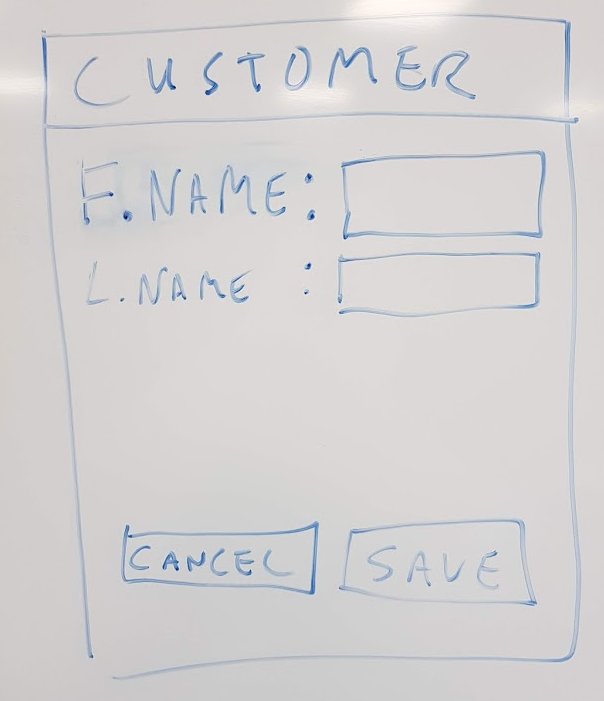 CUSTOMER
F.NAME:
L.NAME :
CANCEL SAVE